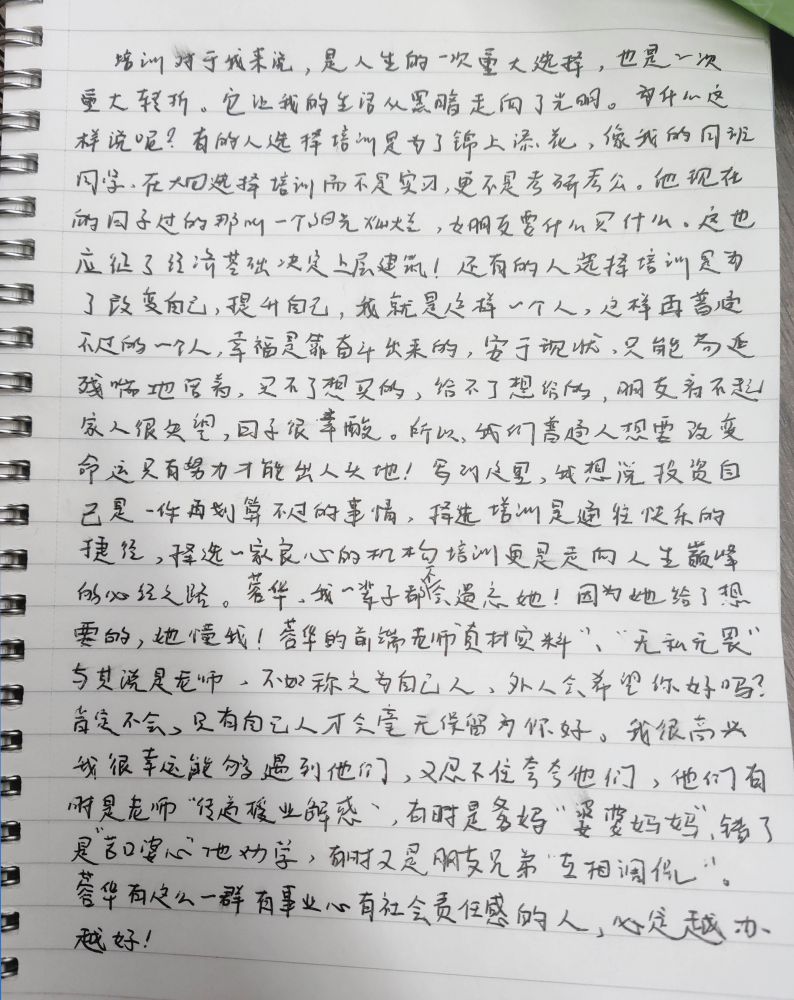 培训对于我来说，是人生的一次重大选择，也是一次
重大转折。它让我的生活从黑暗走向了光明。为什么这
样说呢？有的人选择培训是为了锦上添花，像我的同班
同学，在大四选择培训而不是实习，更不是考研考公。他现在
的日子过的那叫一个阳光灿烂，女朋友要什么买什么。这也
应征了经济基础决定上层建筑！还有的人选择培训是为
了改变自己，提升自己，我就是这样一个人，这样再普通
不过的一个人，幸福是靠奋斗出来的，安于现状，只能苟延
残喘地活着，买不了想买的，给不了想给的，朋友看不起
家人很失望，日子很辛酸。所以，我们普通人想要改变
命运只有努力才能出人头地！写到这里，我想说投资自
己是一件再划算不过的事情，择选培训是通往快乐的
捷径，择选一家良心的机构培训更是走向人生巅峰
的必经之路。蓉华，我一辈子都不会遗忘她！因为她给了想
要的，她懂我！蓉华的前端老师“真材实料”、“无私无畏”
与其说是老师，不如称之为自己人，外人会希望你好吗？
肯定不会，只有自己人才会毫无保留为你好。我很高兴
我很幸运能够遇到他们，又忍不住夸夸他们，他们有
时是老师“传道授业解惑”，有时是爹妈“婆婆妈妈”，错了
是“苦口婆心”地劝学，有时又是朋友兄弟“互相调侃”。
蓉华有这么一群有事业心有社会责任感的人，必定越办
越好！